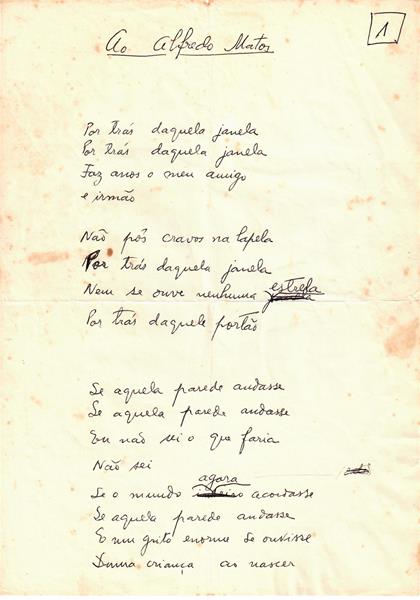 Ao Alfredo Matos
1
Por trás daquela janela
Por trás daquela janela
Faz anos o meu amigo
e irmão
Não pôs cravos na lapela
Por trás daquela janela
Nem se ouve nenhuma estrela
Por trás daquele portão
Se aquela parede andasse
Se aquela parede andasse
Eu não sei o que faria
Não sei
Se o mundo agora acordasse
Se aquela parede andasse
E um grito enorme se ouvisse
Duma criança ao nascer